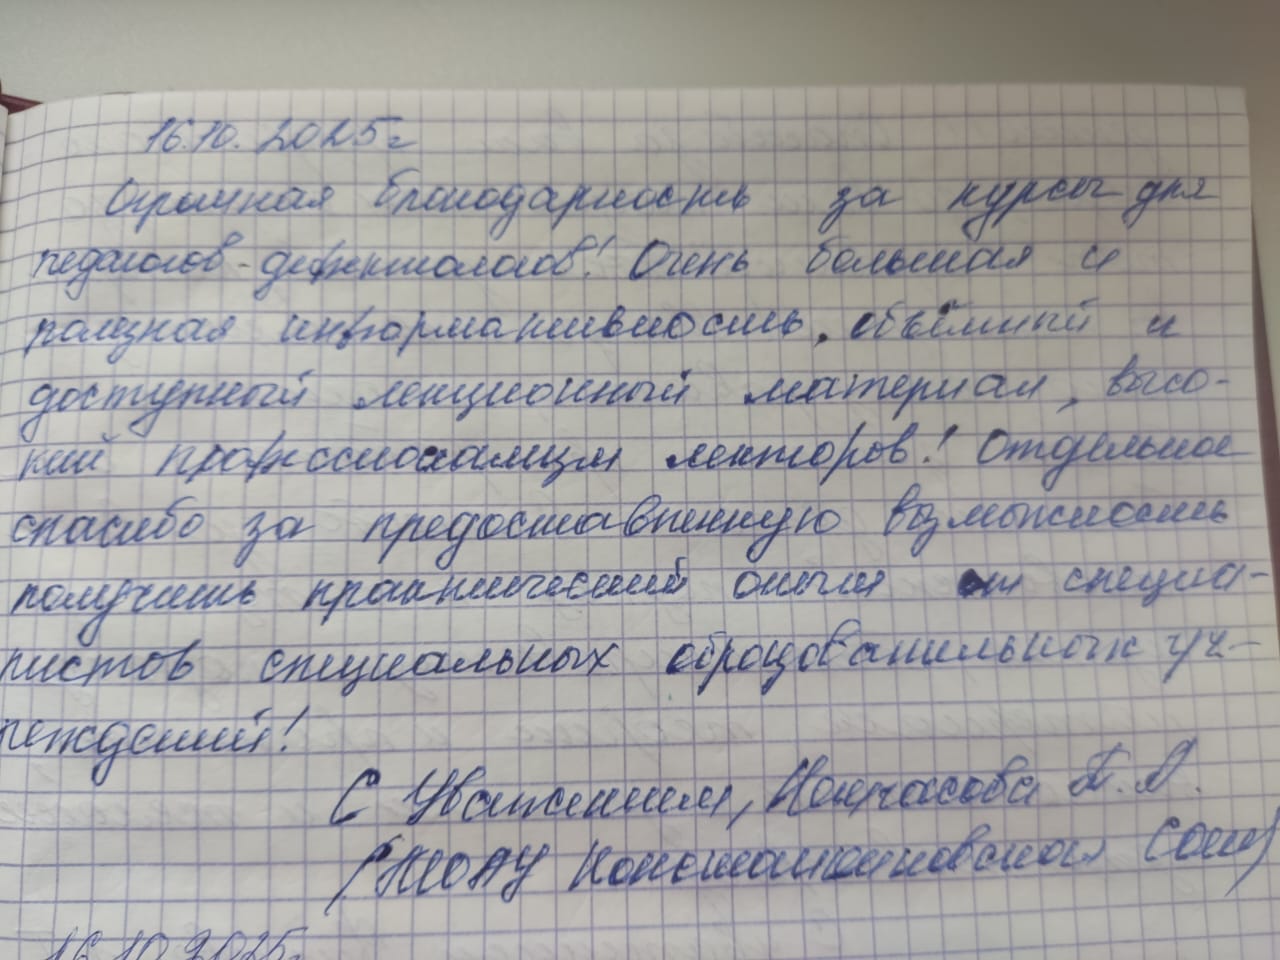 16.10.2025г
Огромная благодарность за курсы для
педагогов-дефектологов! Очень большая и
полезная информативность, объёмный и
доступный лекционный материал, высо-
кий профессионализм лекторов! Отдельное
спасибо за предоставленную возможность
получить практический опыт от специа-
листов специальных образовательных уч-
реждений!
С Уважением, Т. А.
Константиновская СОШ)
16.10.2025г